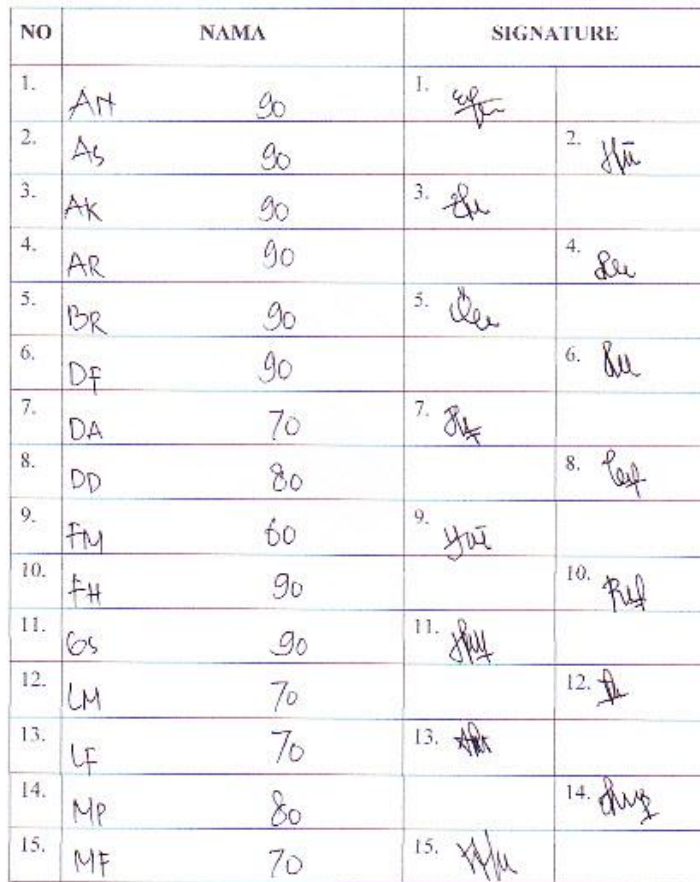 NO NAMA SIGNATURE
1. AH 90 1.
2. AS 90 2.
3. AK 90 3.
4. AR 90 4.
5. BR 90 5.
6. DF 90 6.
7. DA 70 7.
8. DD 80 8.
9. FM 60 9.
10. FH 90 10.
11. GS 90 11.
12. LM 70 12.
13. LF 70 13.
14. MP 80 14.
15. MF 70 15.